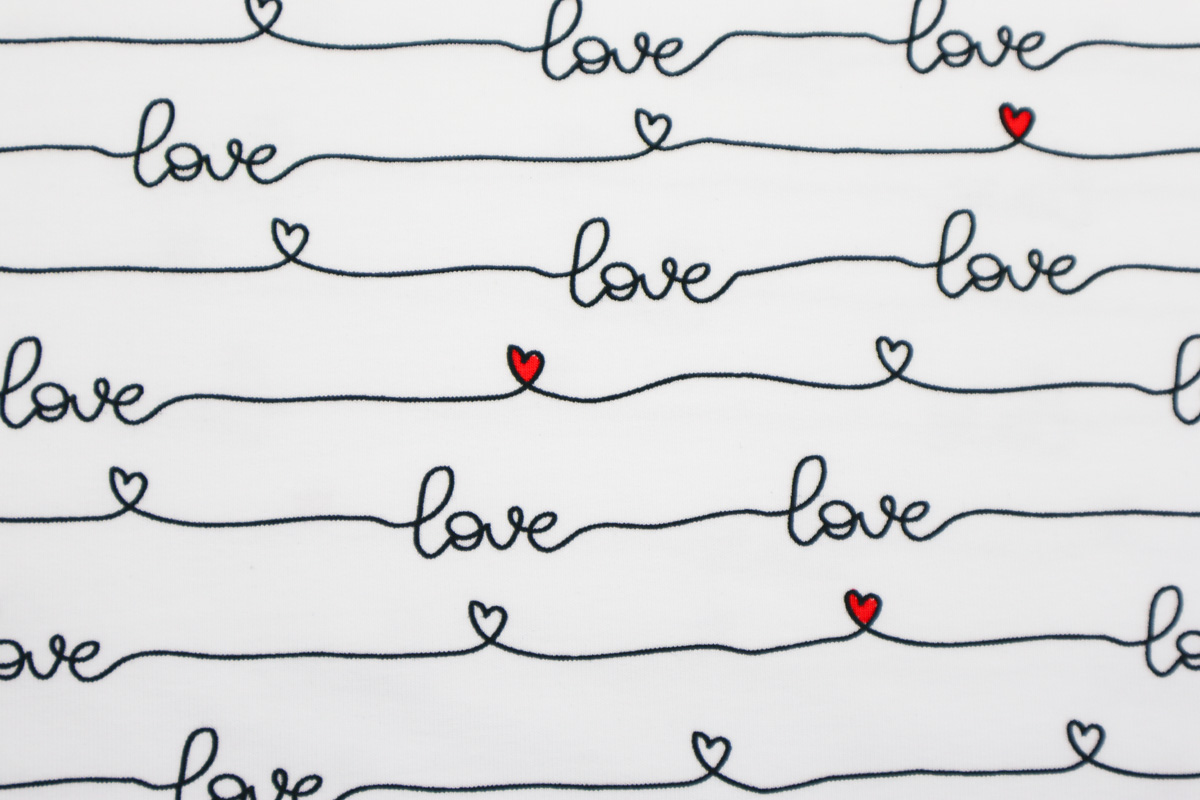 love love
love
love love
love l
love love
ove lo
love